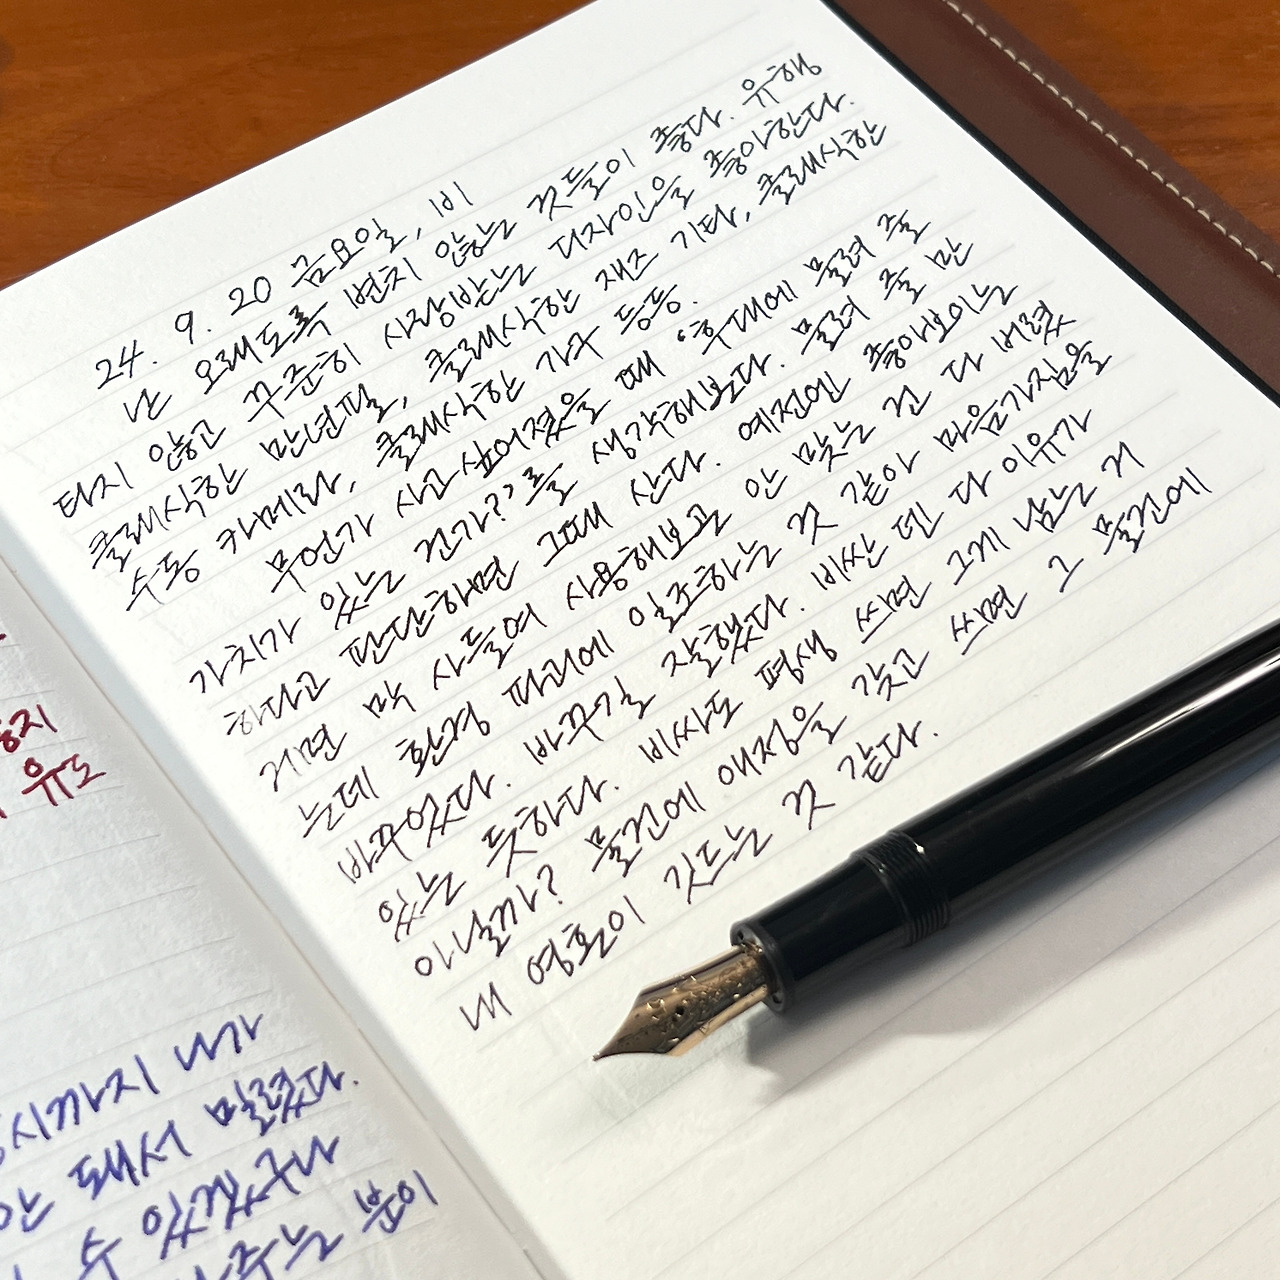 24. 9. 20 금요일, 비
난 오래도록 변치 않는 것들이 좋다. 유행
타지 않고 꾸준히 사랑받는 디자인을 좋아한다.
클래식한 만년필, 클래식한 재즈 기타, 클래식한
수동 카메라, 클래식한 가구 등등.
무언가 사고싶어졌을 때 '후대에 물려 줄
가치가 있는 건가?'를 생각해보다. 물려 줄 만
하다고 판단하면 그때 산다. 예전엔 좋아보이는
거면 막 사들여 사용해보고 안 맞는 건 다 버렸
는데 환경 파괴에 일조하는 것 같아 마음가짐을
바꾸었다. 바꾸길 잘했다. 비싼 덴 다 이유가
있는 듯하다. 비싸도 평생 쓰면 그게 남는 거
아닐까? 물건에 애정을 갖고 쓰면 그 물건에
내 영혼이 깃드는 것 같다.
유도
시까지 내가
안 돼서 밀렸다.
수 있겠구나
주는 분이